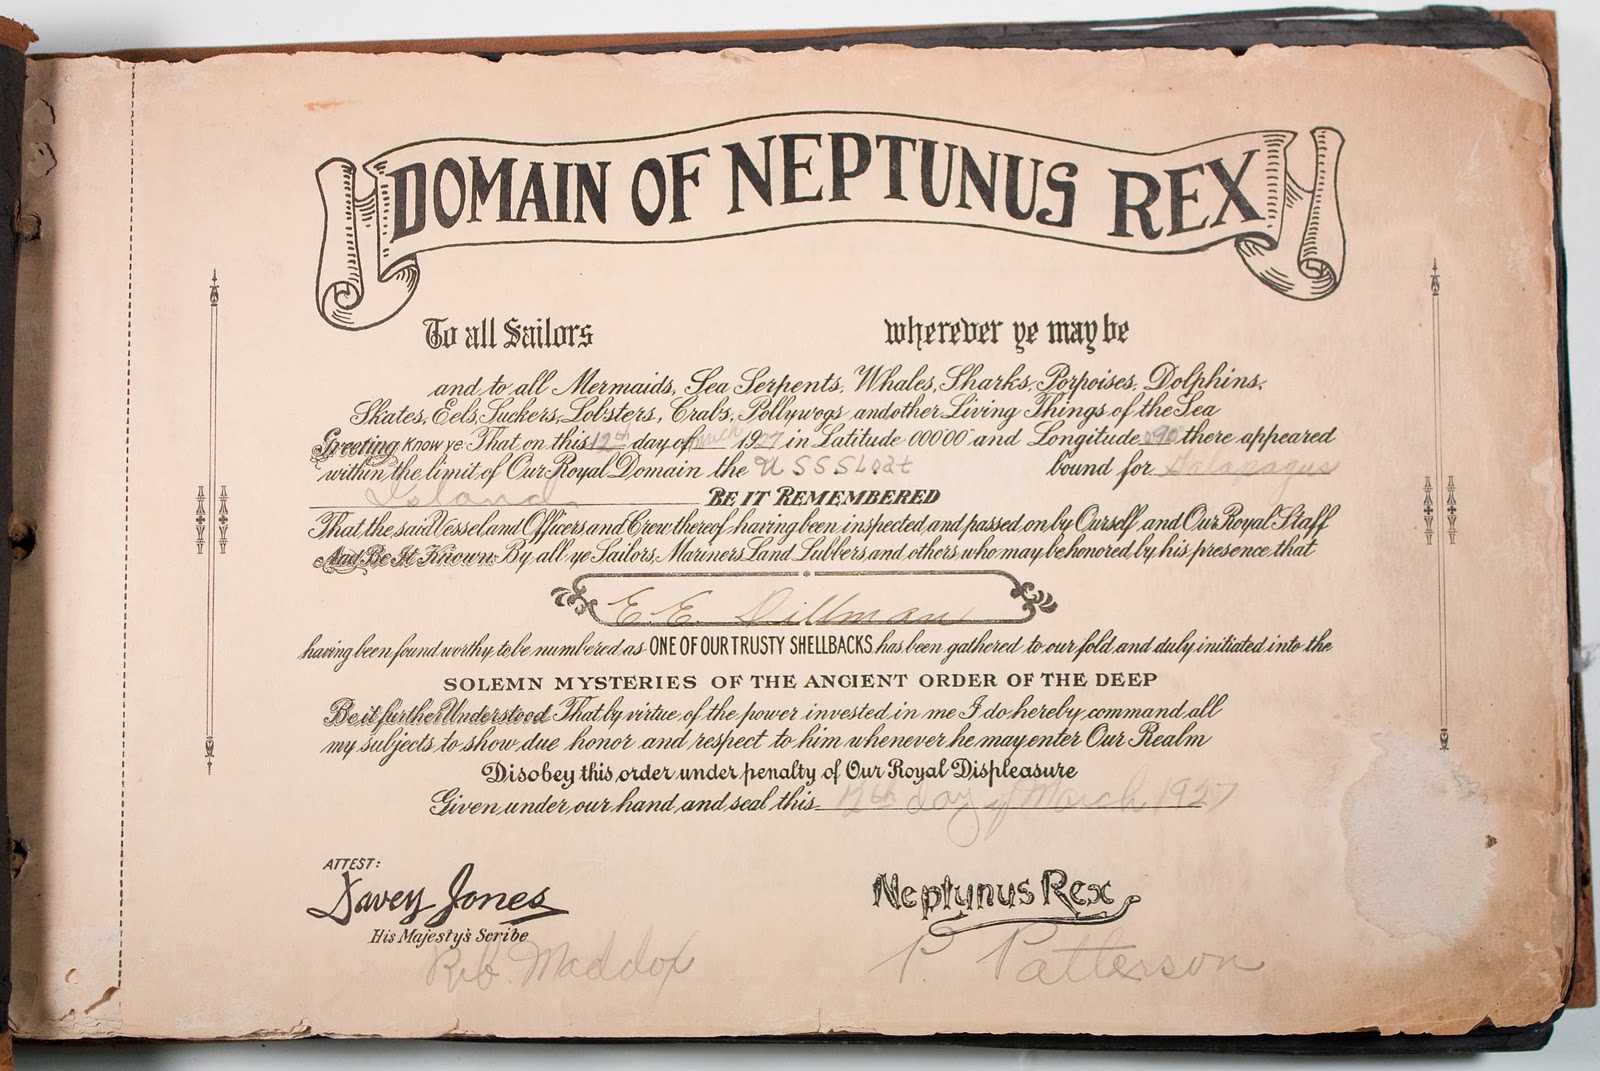 DOMAIN OF NEPTUNUS REX
To all Sailors wherever ye may be
and to all Mermaids, Sea Serpents, Whales, Sharks, Porpoises, Dolphins,
Skates, Eels, Suckers, Lobsters, Crabs, Pollywogs and other Living Things of the Sea
Greeting Know ye: That on this 12th day of March 1927 in Latitude 00000 and Longitude 090° there appeared
within the limit of Our Royal Domain the U S S Sloat bound for Galapagus
Island BE IT REMEMBERED
That the said Vessel and Officers and Crew thereof having been inspected and passed on by Ourself and Our Royal Staff
And Be It Known: By all ye Sailors, Mariners, Land Lubbers, and others who may be honored by his presence that
E. E. Dillman
having been found worthy to be numbered as ONE OF OUR TRUSTY SHELLBACKS has been gathered to our fold and duly initiated into the
SOLEMN MYSTERIES OF THE ANCIENT ORDER OF THE DEEP
Be it further Understood: That by virtue of the power invested in me I do hereby command all
my subjects to show due honor and respect to him whenever he may enter Our Realm
Disobey this order under penalty of Our Royal Displeasure
Given under our hand and seal this 12th day of March 1927
ATTEST:
Davey Jones Neptunus Rex
His Majesty's Scribe
Maddox P Patterson